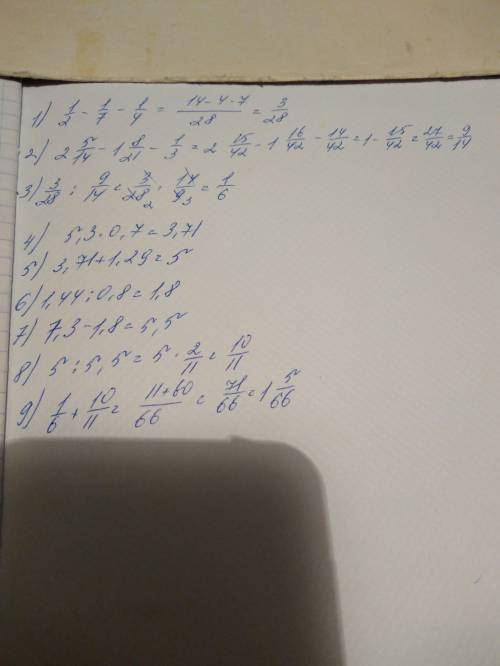 1) 1/2 - 1/7 - 1/4 = (14-4-7)/28 = 3/28
2) 2 5/14 - 1 8/21 - 1/3 = 2 15/42 - 1 16/42 - 14/42 = 1 - 15/42 = 27/42 = 9/14
3) 3/28 : 9/14 = 3/28 2 · 14/9 3 = 1/6
4) 5,3·0,7=3,71
5) 3,71+1,29=5
6) 1,44:0,8=1,8
7) 7,3-1,8=5,5
8) 5:5,5=5·2/11=10/11
9) 1/6+10/11=(11+60)/66=71/66=1 5/66